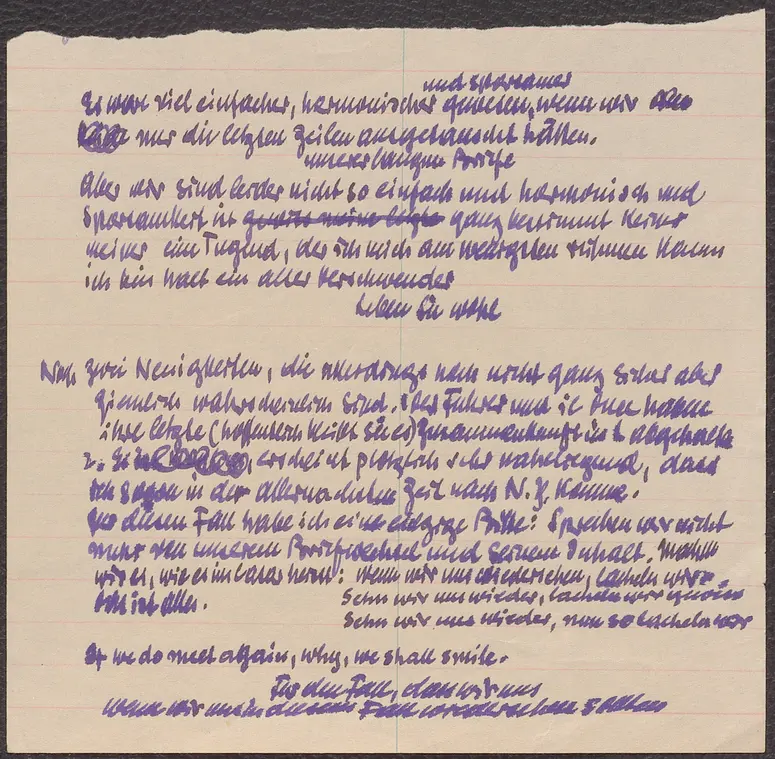 und sparsamer
Es wäre viel einfacher, harmonischer gewesen, wenn wir
nur die letzten Zeilen ausgetauscht hätten.
unserer langen Briefe
Aber wir sind leider nicht so einfach und harmonisch und
Sparsamkeit ist gewiss meine letzte ganz bestimmt keine
meiner eine Tugend, der ich mich am wenigsten rühmen kann
ich bin halt ein alter Verschwender
Leben Sie wohl
Noch zwei Neuigkeiten, die allerdings noch nicht ganz sicher aber
ziemlich wahrscheinlich sind. Der Führer und il Duce haben
ihre letzte (hoffentlich bleibt sie es) Zusammenkunft abgehalten
2. Es erscheint plötzlich sehr naheliegend, dass
ich in der allernächsten Zeit nach N.Y. komme.
Für diesen Fall habe ich eine einzige Bitte: Sprechen wir nicht
mehr von unserem Briefwechsel und seinem Inhalt. Machen
wir es, wie es im Caesar heisst: wenn wir uns wiedersehen, lächeln wir.
Das ist alles.
Sehn wir uns wieder, lächeln wir gewiss
Sehn wir uns wieder, nun so lächeln wir
If we do meet again, why, we shall smile.
Für den Fall, dass wir uns
wenn wir uns in diesem Fall wiedersehen sollten